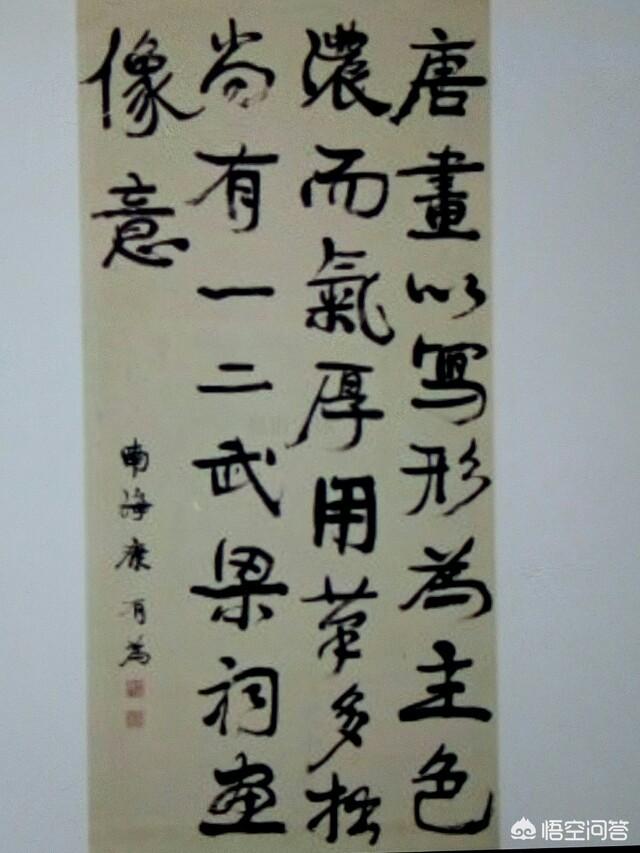 唐畫以寫形為主色
濃而氣厚用筆多拙
尚有一二武梁祠画
像意
南海康有為
悟空问答